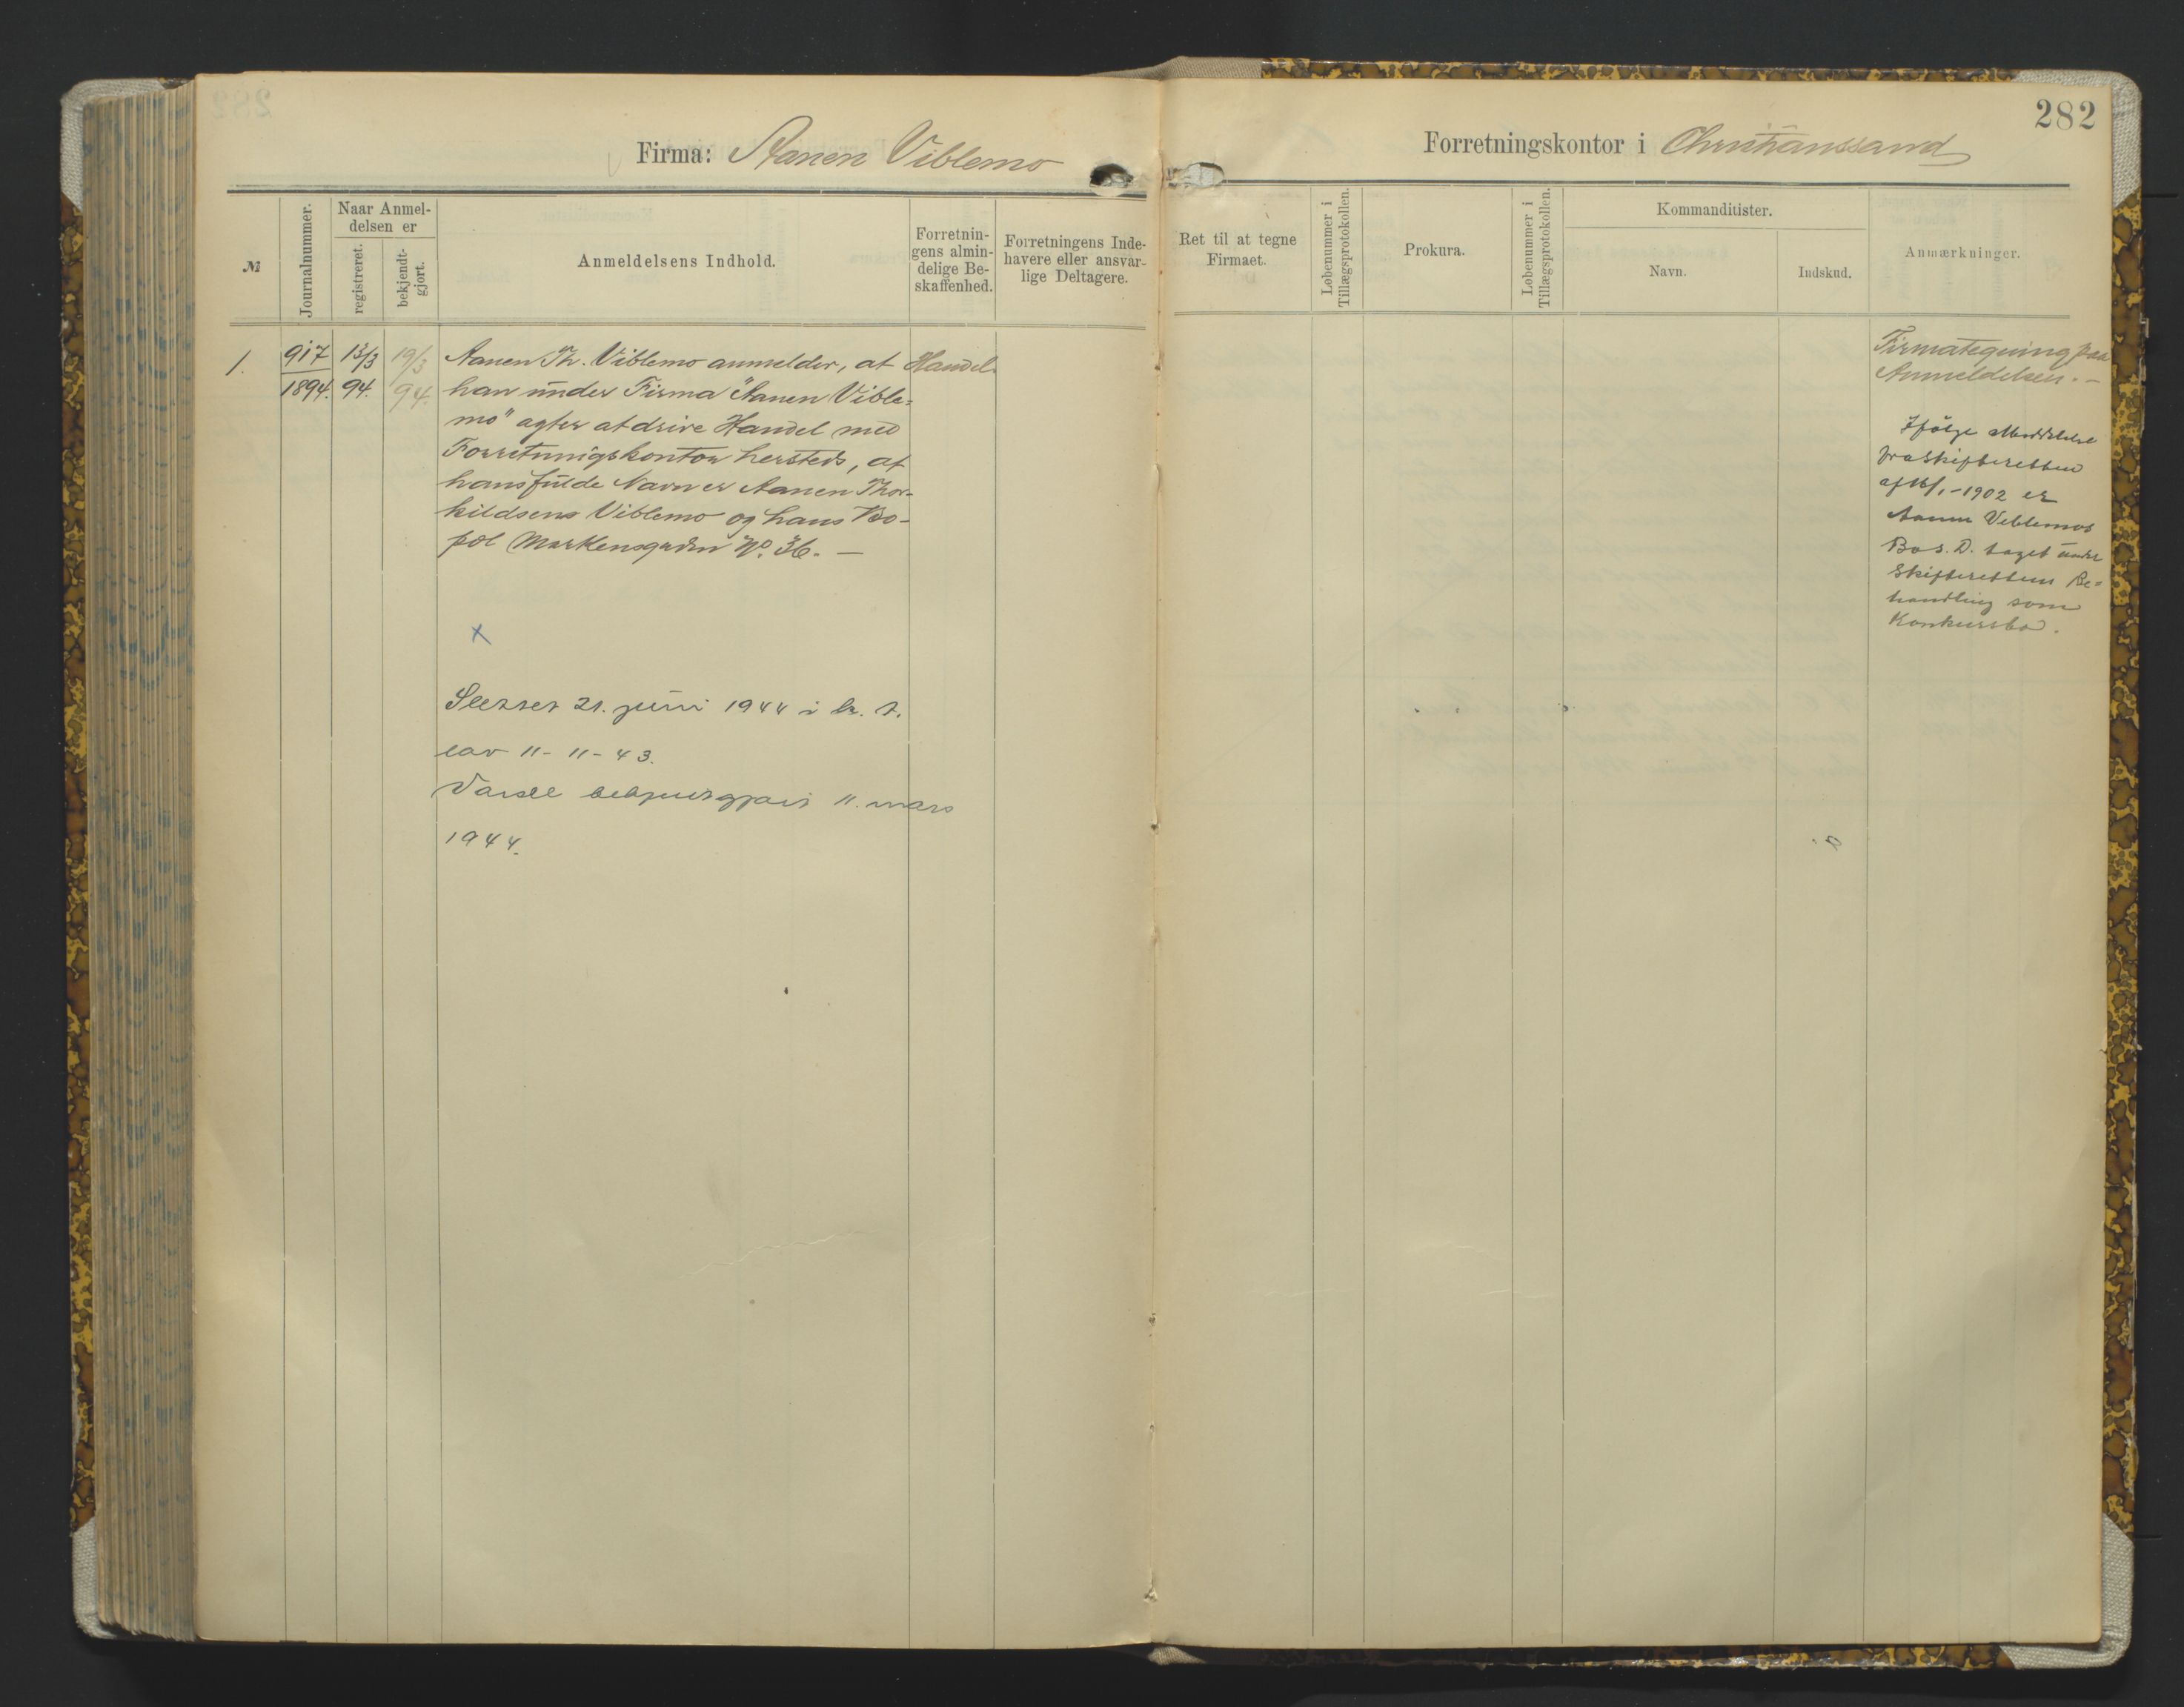 282
Firma: Aanen Viblemo
Forretningskontor i Christianssand
№
Journalnummer.
Naar Anmel-
delsen er
registreret.
bekjendt-
gjort.
Anmeldelsens Indhold.
Forretnin-
gens almin-
delige Be-
skaffenhed.
Forretningens Inde-
havere eller ansvar-
lige Deltagere.
Ret til at tegne
Firmaet.
Løbenummer i
Tillægsprotokollen.
Prokura.
Løbenummer i
Tillægsprotokollen.
Kommanditister.
Navn.
Indskud.
Anmærkninger.
1.
917
1894.
13/3
94.
19/3
94.
Aanen Th. Viblemo anmelder, at
han under Firma "Aanen Vible=
mo" agter at drive Handel med
Forretningskontor hersteds, at
hans fulde Navn er Aanen Thor-
kildsen Viblemo og hans Bo-
pæl Markensgaden No. 36. —
Handel.
x
Slettet 21. juni 1944 i h. t.
lov 11-11-43.
Varsel 11. mars
1944.
Firmategning paa
Anmeldelsen. —
Ifølge Meddelelse
fra Skifteretten
af 16/1-1902 er
Aanen Viblemos
Bo s. D. taget under
Skifterettens Be=
handling som
Konkursbo.